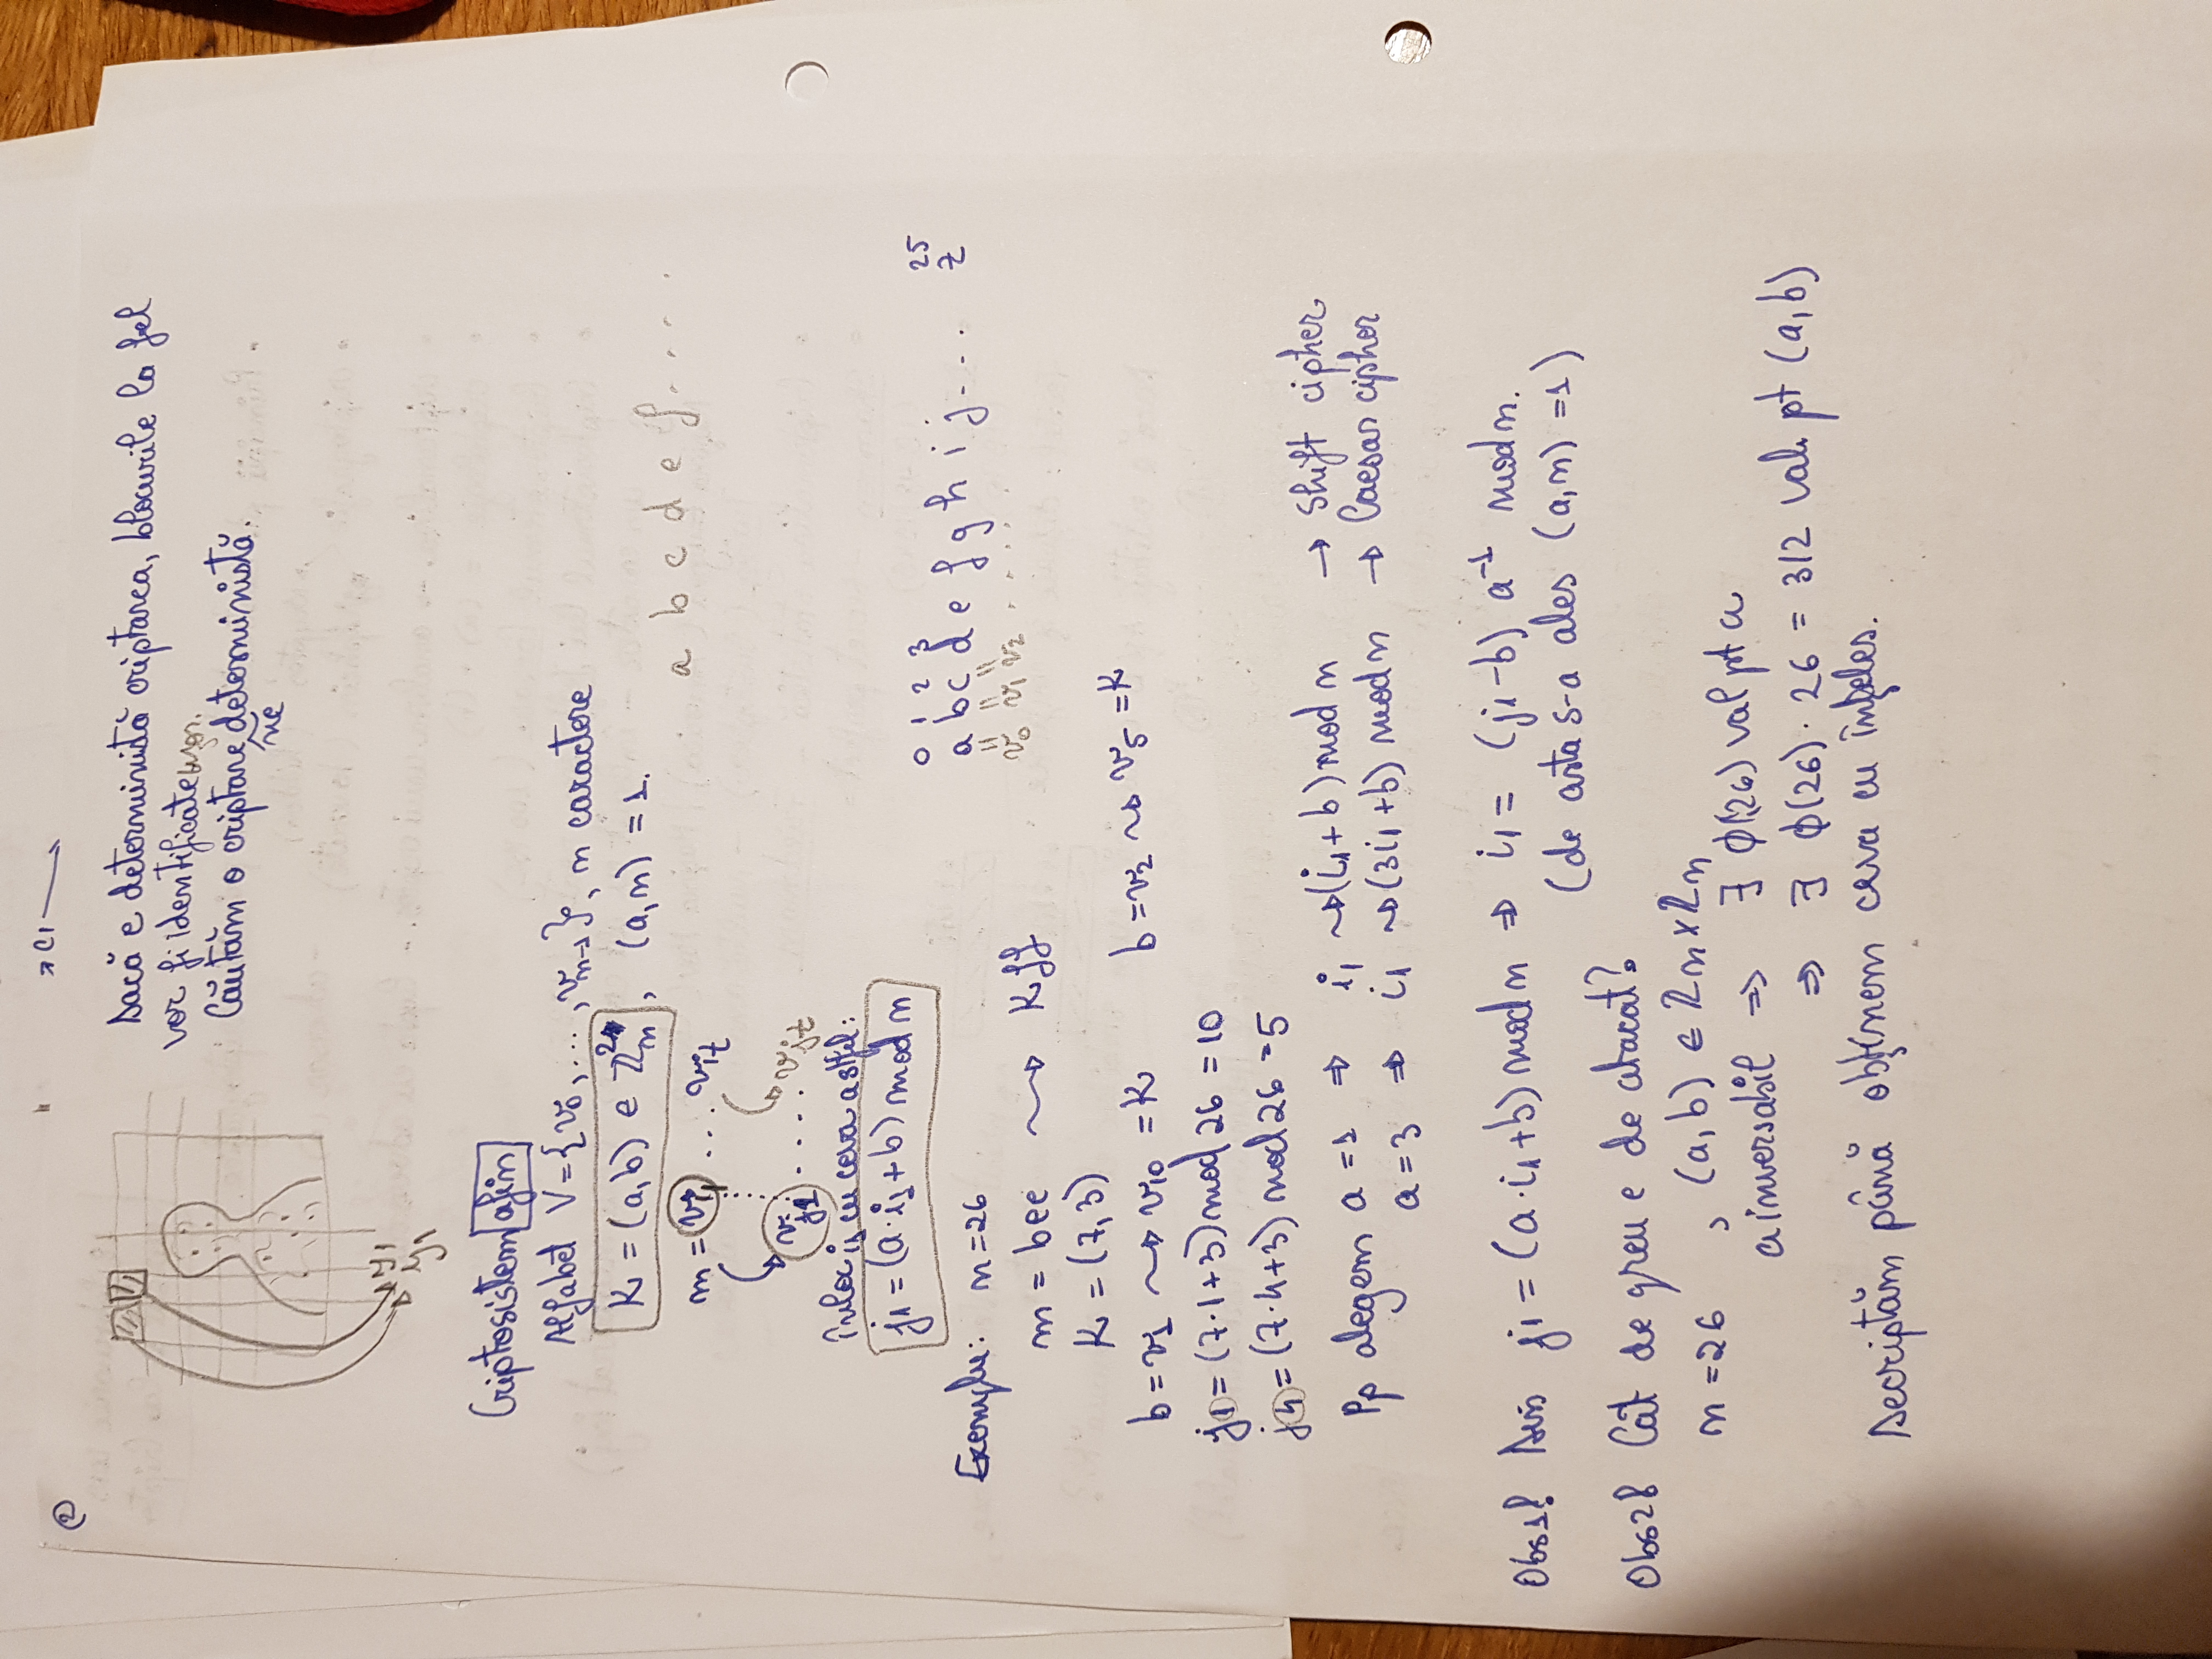 ②
→ C1 →
Dacă e deterministă criptarea, blocurile la fel
vor fi identificate ușor.
Căutăm o criptare deterministă.
ne
y1
y1
Criptosistem afin
Alfabet V = {v0, ..., vn-1}, n caractere
K = (a,b) ∈ ℤn², (a,n) = 1.
a b c d e f.....
m = vi1 ... vit
vj1 ..... vjt
Înloc i1 cu ceva astfel:
j1 = (a·i1 + b) mod n
0 1 2 3 25
a b c d e f g h i j... z
v0 v1 v2 ......
Exemplu: n = 26
m = bee ⇝ Kff
K = (7,3)
b = v1 ⇝ v10 = K b = v2 ⇝ v5 = K
j1 = (7·1+3) mod 26 = 10
j4 = (7·4+3) mod 26 = 5
Pp alegem a = 1 ⇒ i1 ⇝ (i1+b) mod n → Shift cipher
a = 3 ⇒ i1 ⇝ (3i1+b) mod n → Caesar cipher
Obs1! Din j1 = (a·i1+b) mod n ⇒ i1 = (j1-b) a⁻¹ mod n.
(de asta s-a ales (a,n) = 1)
Obs2! Cât de greu e de atacat?
n = 26 , (a,b) ∈ ℤn × ℤn
a inversabil ⇒ ∃ ϕ(26) val pt a
⇒ ∃ ϕ(26) · 26 = 312 val. pt (a,b)
Decriptăm până obținem ceva cu înțeles.